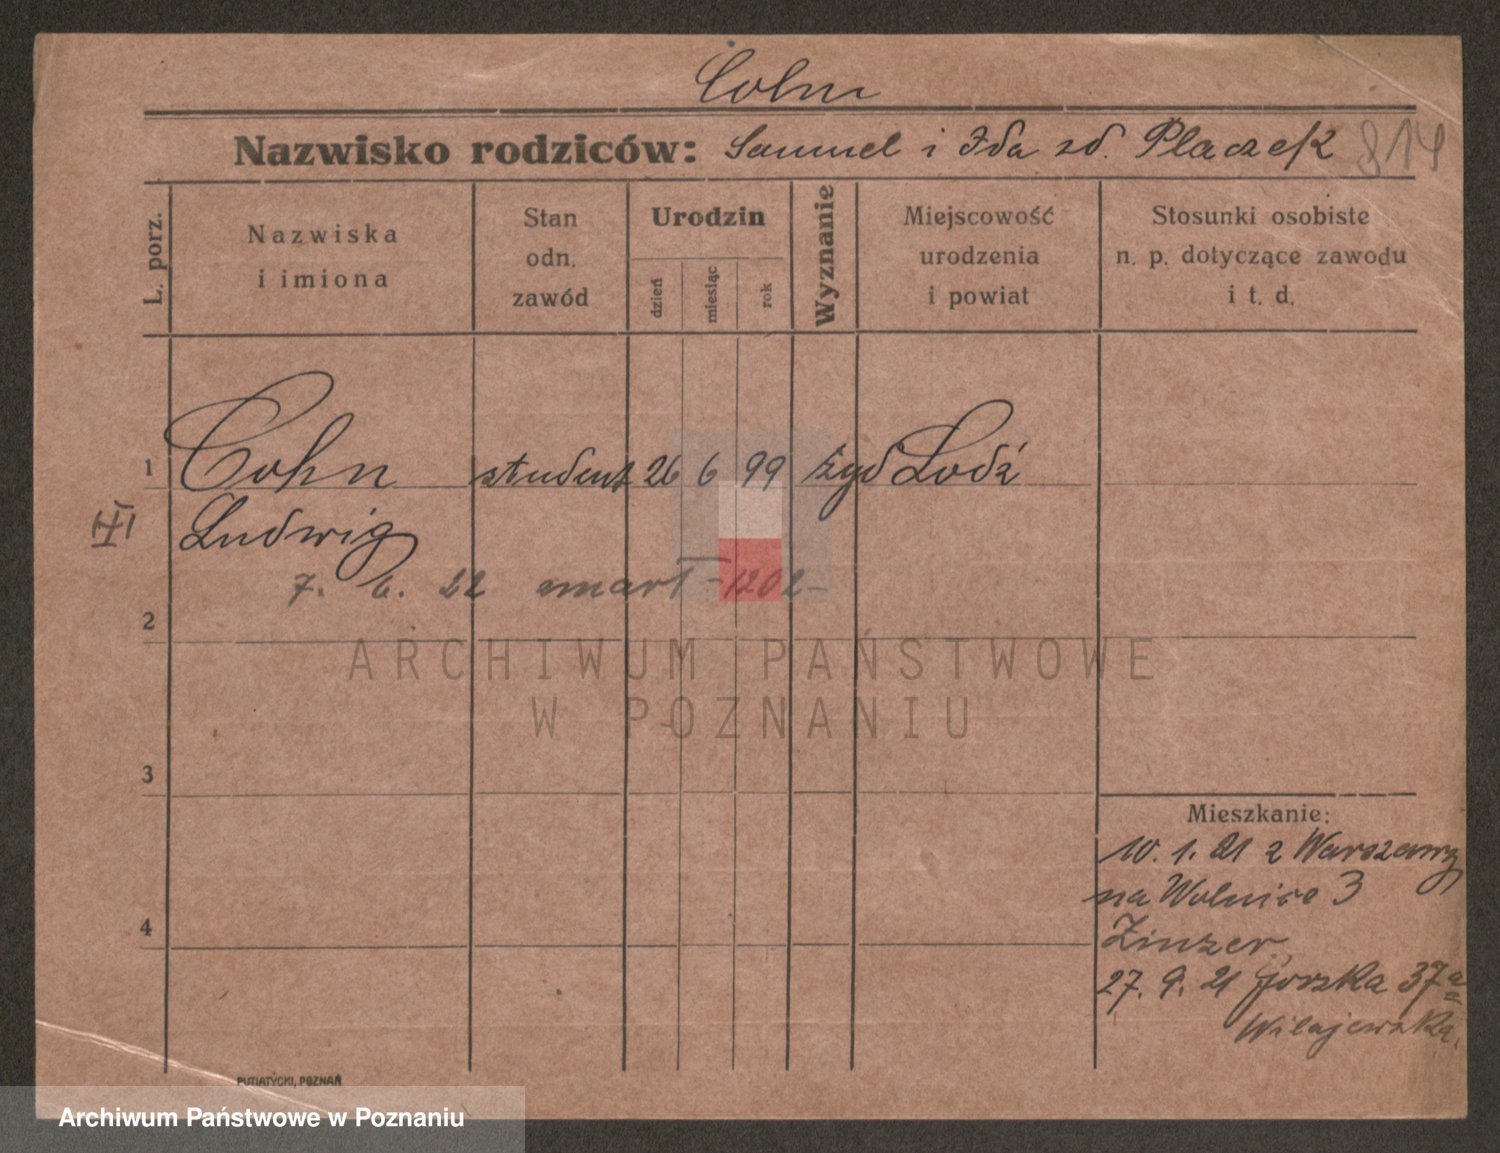 Cohn
Nazwisko rodziców: Samuel i Ida zd. Placzek 814
L. porz.
Nazwiska
i imiona
Stan
odn.
zawód
Urodzin
dzień
miesiąc
rok
Wyznanie
Miejscowość
urodzenia
i powiat
Stosunki osobiste
n. p. dotyczące zawodu
i t. d.
1 Cohn student 26 6 99 żyd Lodź
Ludwig
7. 6. 22 zmarł -1202-
2
ARCHIWUM PAŃSTWOWE
W POZNANIU
3
Mieszkanie:
10. 1. 21 z Warszawy
na Wolnice 3
4
Zinzer,
27. 9. 21 37a
PUTIATYCKI, POZNAŃ
Archiwum Państwowe w Poznaniu